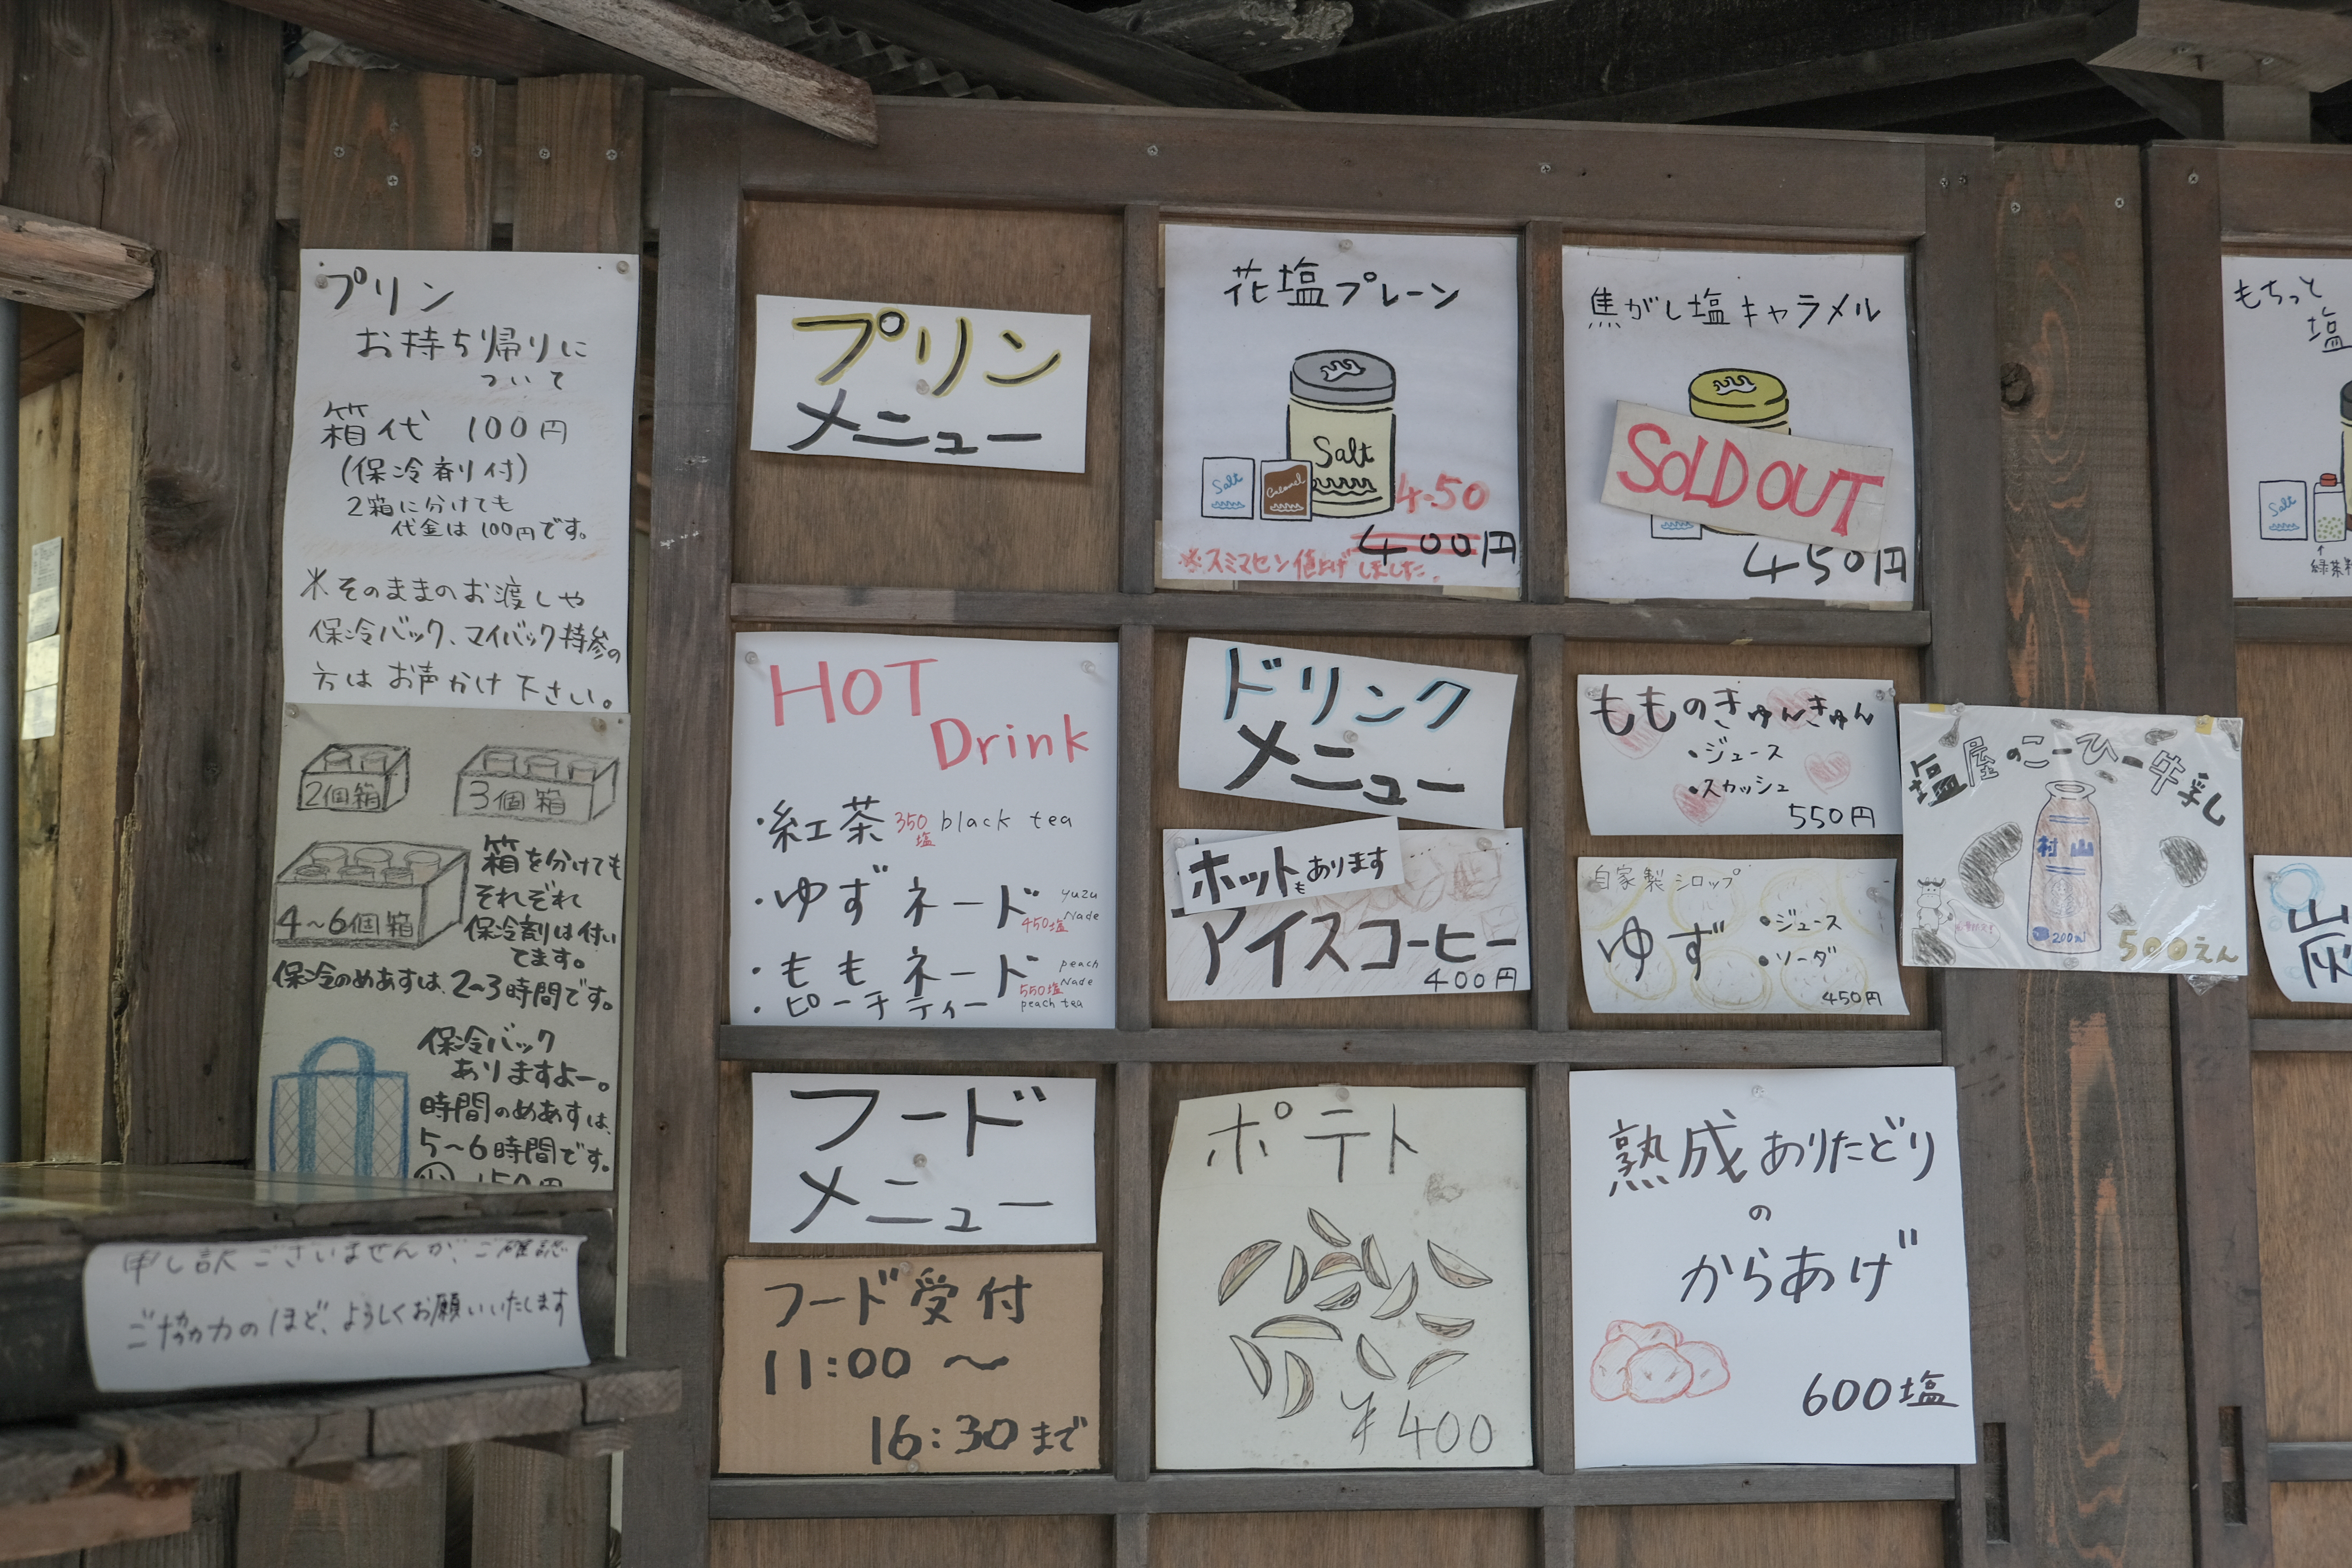 プリン
お持ち帰りに
ついて
箱代 100円
(保冷剤付)
2箱に分けても
代金は100円です。
※そのままのお渡しや
保冷バック、マイバック持参の
方はお声かけ下さい。
2個箱
3個箱
4~6個箱
箱を分けても
それぞれ
保冷剤は付い
てます。
保冷のめあすは、2~3時間です。
保冷バック
ありますよー。
時間のめあすは、
5~6時間です。
申し訳ございませんが、ご確認
ご協力のほど、よろしくお願いいたします
プリン
メニュー
花塩プレーン
Salt
Salt
Caramel
4.50
400円
※スミマセン値上げしました。
焦がし塩キャラメル
SOLD OUT
450円
もちっと
塩
Salt
緑茶
HOT
Drink
・紅茶 350塩 black tea
・ゆずネード 450塩 yuzu Nade
・ももネード 550塩 peach Nade
・ピーチティー peach tea
ドリンク
メニュー
ホットもあります
アイスコーヒー
400円
もものきゅんきゅん
・ジュース
・スカッシュ
550円
自家製シロップ
ゆず
・ジュース
・ソーダ
450円
塩屋のこーひー牛乳
村山
200ml
500えん
山
炭
フード
メニュー
フード受付
11:00 ~
16:30まで
ポテト
¥400
熟成ありたどり
の
からあげ
600塩